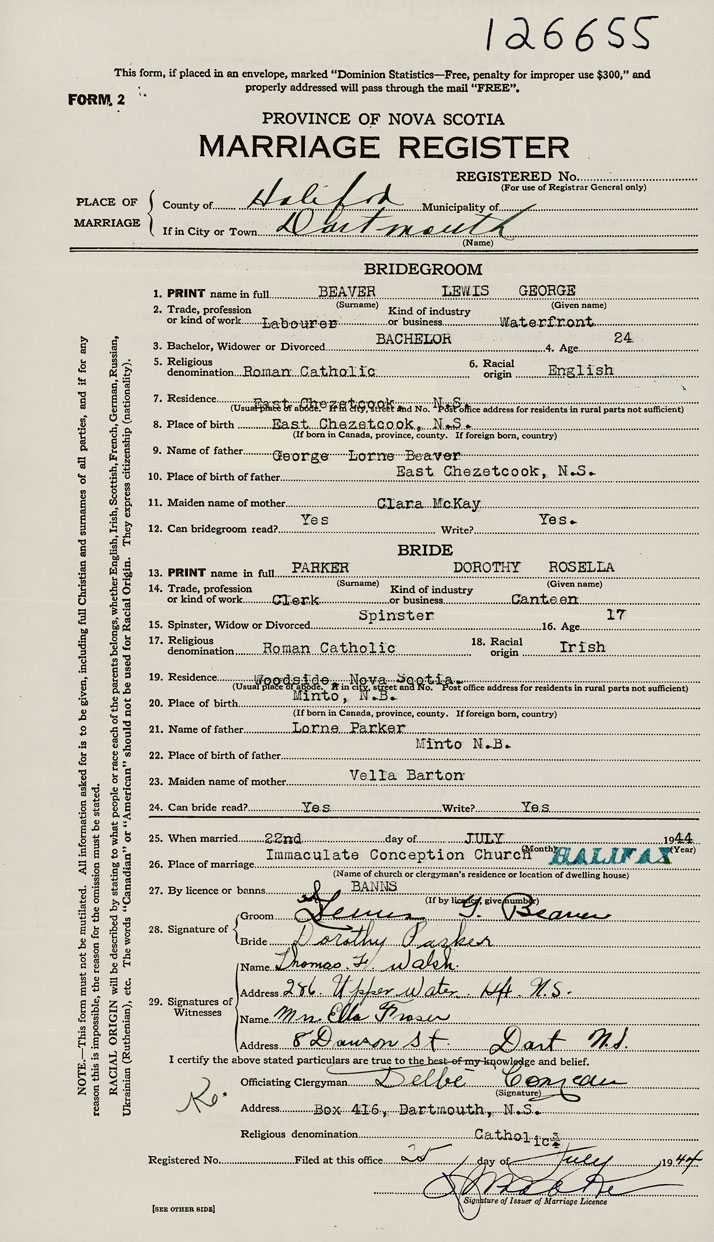 126655
This form, if placed in an envelope, marked "Dominion Statistics—Free, penalty for improper use $300," and
properly addressed will pass through the mail "FREE".
FORM 2
PROVINCE OF NOVA SCOTIA
MARRIAGE REGISTER
REGISTERED No.
(For use of Registrar General only)
PLACE OF MARRIAGE
County of Halifax Municipality of
If in City or Town Dartmouth
(Name)
BRIDEGROOM
1. PRINT name in full BEAVER LEWIS GEORGE
(Surname) (Given name)
2. Trade, profession or kind of work Labourer Kind of industry or business Waterfront
3. Bachelor, Widower or Divorced BACHELOR 4. Age 24
5. Religious denomination Roman Catholic 6. Racial origin English
7. Residence East Chezetcook, N.S.
(Usual place of abode. If in city, street and No. Post office address for residents in rural parts not sufficient)
8. Place of birth East Chezetcook, N.S.
(If born in Canada, province, county. If foreign born, country)
9. Name of father George Lorne Beaver
10. Place of birth of father East Chezetcook, N.S.
11. Maiden name of mother Clara McKay
12. Can bridegroom read? Yes Write? Yes.
BRIDE
13. PRINT name in full PARKER DOROTHY ROSELLA
(Surname) (Given name)
14. Trade, profession or kind of work Clerk Kind of industry or business Canteen
15. Spinster, Widow or Divorced Spinster 16. Age 17
17. Religious denomination Roman Catholic 18. Racial origin Irish
19. Residence Woodside, Nova Scotia.
(Usual place of abode. If in city, street and No. Post office address for residents in rural parts not sufficient)
20. Place of birth Minto, N.B.
(If born in Canada, province, county. If foreign born, country)
21. Name of father Lorne Parker
22. Place of birth of father Minto N.B.
23. Maiden name of mother Vella Barton
24. Can bride read? Yes Write? Yes
25. When married 22nd day of JULY 1944
(Month) (Year)
26. Place of marriage Immaculate Conception Church HALIFAX
(Name of church or clergyman's residence or location of dwelling house)
27. By licence or banns BANNS
(If by licence, give number)
28. Signature of
Groom Lewis G. Beaver
Bride Dorothy Parker
29. Signatures of Witnesses
Name Thomas. F. Walsh.
Address 286. Upper Water. Hfx. N.S.
Name Mrs. Ella Fraser
Address 8 Dawson St. Dart N.S.
I certify the above stated particulars are true to the best of my knowledge and belief.
Officiating Clergyman Delbé Comeau
(Signature)
Address Box 416, Dartmouth, N.S.
Religious denomination Catholic
Registered No. Filed at this office 25 day of July 1944
Signature of Issuer of Marriage Licence
[SEE OTHER SIDE]
NOTE.—This form must not be mutilated. All information asked for is to be given, including full Christian and surnames of all parties, and if for any
reason this is impossible, the reason for the omission must be stated.
RACIAL ORIGIN will be described by stating to what people or race each of the parents belongs, whether English, Irish, Scottish, French, German, Russian,
Ukrainian (Ruthenian), etc. The words "Canadian" or "American" should not be used for Racial Origin. They express citizenship (nationality).